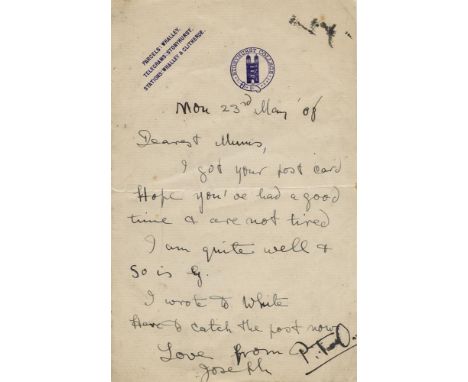 PARCELS-WHALLEY.
TELEGRAMS-STONYHURST.
STATIONS-WHALLEY & CLITHEROE.
STONYHURST COLLEGE
Mon 23rd May '08
Dearest Mums,
I got your post card
Hope you've had a good
time & are not tired
I am quite well &
so is G.
I wrote to White
Have to catch the post now
Love from
Joseph